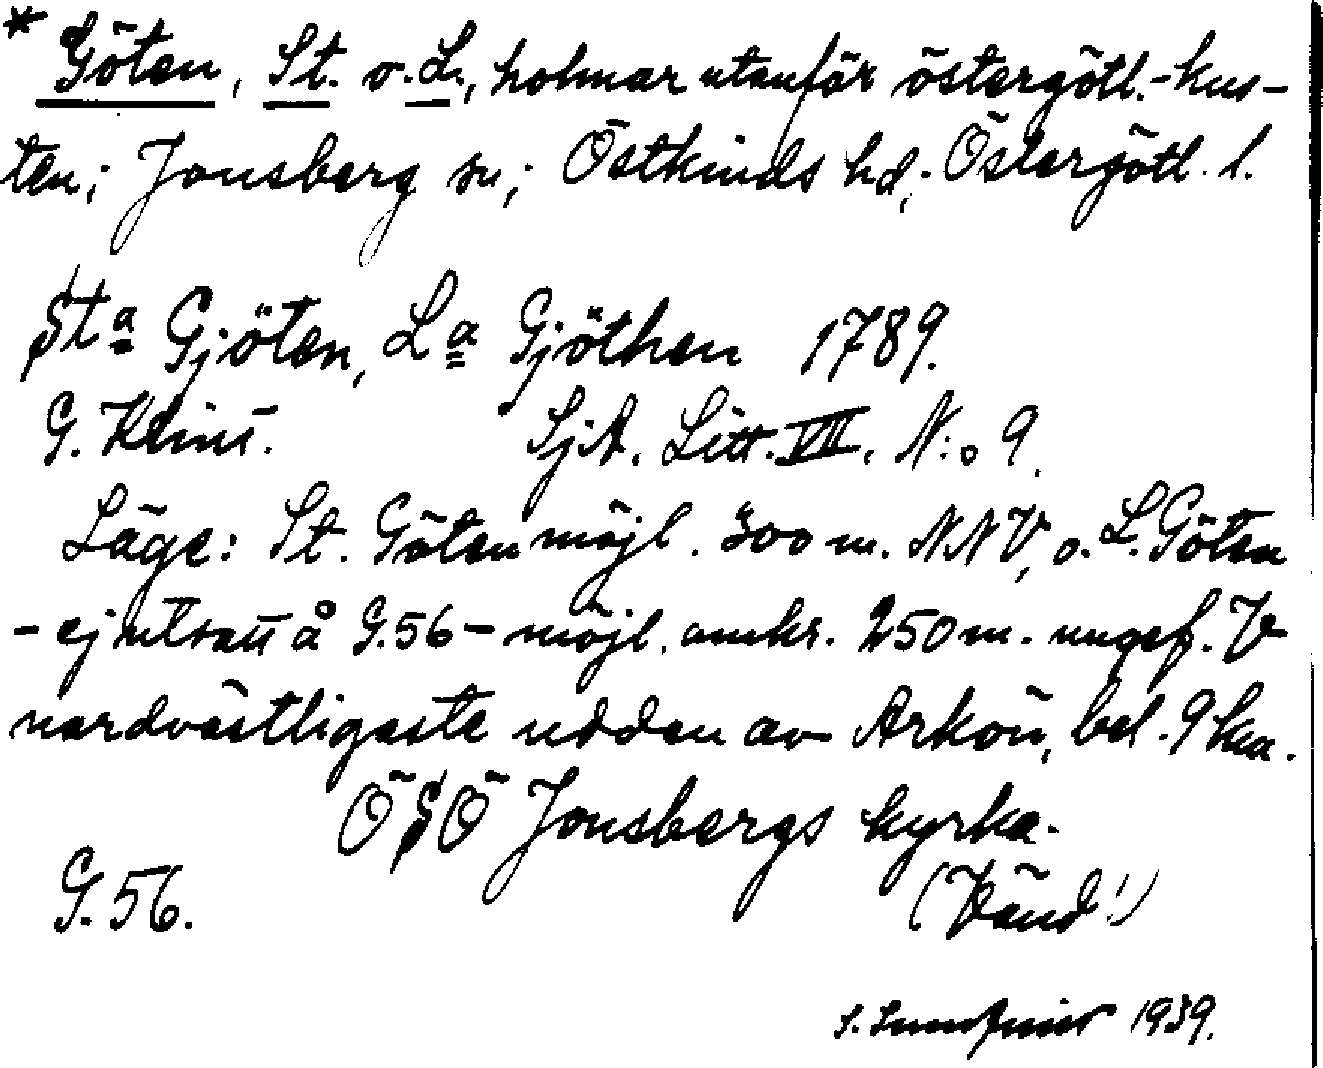 * Göten, St. o. L., holmar utanför östergötl.-kus-
ten; Jonsberg sn; Östkinds hd; Östergötl. l.
St<sup>a</sup> Gjöten, L<sup>a</sup> Gjöthen 1789.
G. Klint. SjA. Litt. VIII. N:o 9.
Läge: St. Göten möjl. 300 m. NNV, o. L. Göten
- ej utsatt å G.56 - möjl. omkr. 250 m. ungef. V
nordvästligaste udden av Arkön, bel. 9 km.
ÖSÖ Jonsbergs kyrka.
G.56. (Vänd!)
1939.